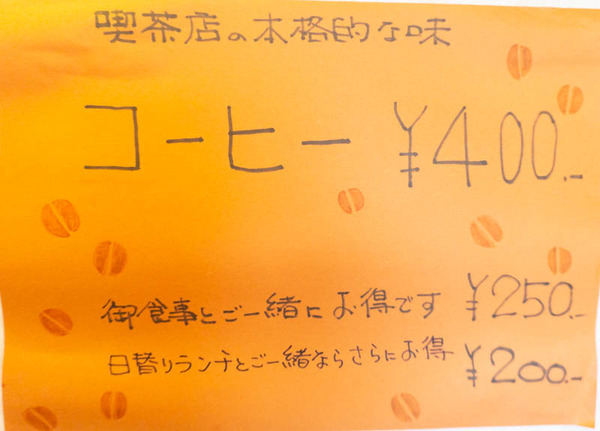 喫茶店の本格的な味
コーヒー ¥400.-
御食事とご一緒にお得です ¥250.-
日替りランチとご一緒ならさらにお得 ¥200.-